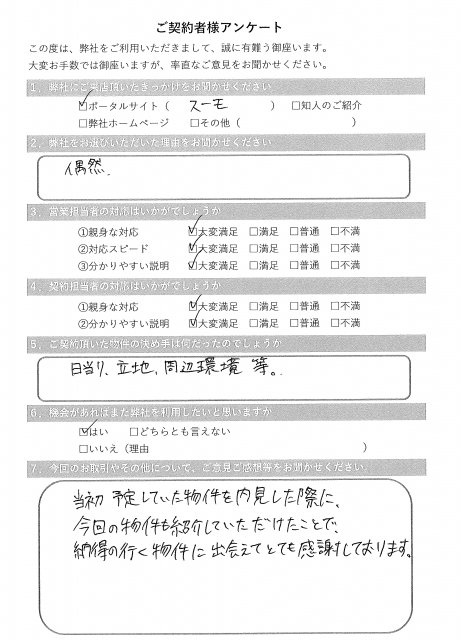 ご契約者様アンケート
この度は、弊社をご利用いただきまして、誠に有難う御座います。
大変お手数では御座いますが、率直なご意見をお聞かせください。
1．弊社にご来店頂いたきっかけをお聞かせください
☑ポータルサイト（ スーモ ） □知人のご紹介
□弊社ホームページ □その他（ ）
2．弊社をお選びいただいた理由をお聞かせください
偶然.
3．営業担当者の対応はいかがでしょうか
①親身な対応 ☑大変満足 □満足 □普通 □不満
②対応スピード ☑大変満足 □満足 □普通 □不満
③分かりやすい説明 ☑大変満足 □満足 □普通 □不満
4．契約担当者の対応はいかがでしょうか
①親身な対応 ☑大変満足 □満足 □普通 □不満
②分かりやすい説明 ☑大変満足 □満足 □普通 □不満
5．ご契約頂いた物件の決め手は何だったのでしょうか
日当り、立地、周辺環境 等。
6．機会があればまた弊社を利用したいと思いますか
☑はい □どちらとも言えない
□いいえ（理由 ）
7．今回のお取引やその他について、ご意見ご感想等をお聞かせください
当初 予定していた物件を内見した際に、
今回の物件も紹介していただけたことで、
納得の行く物件に出会えてとても感謝しております。